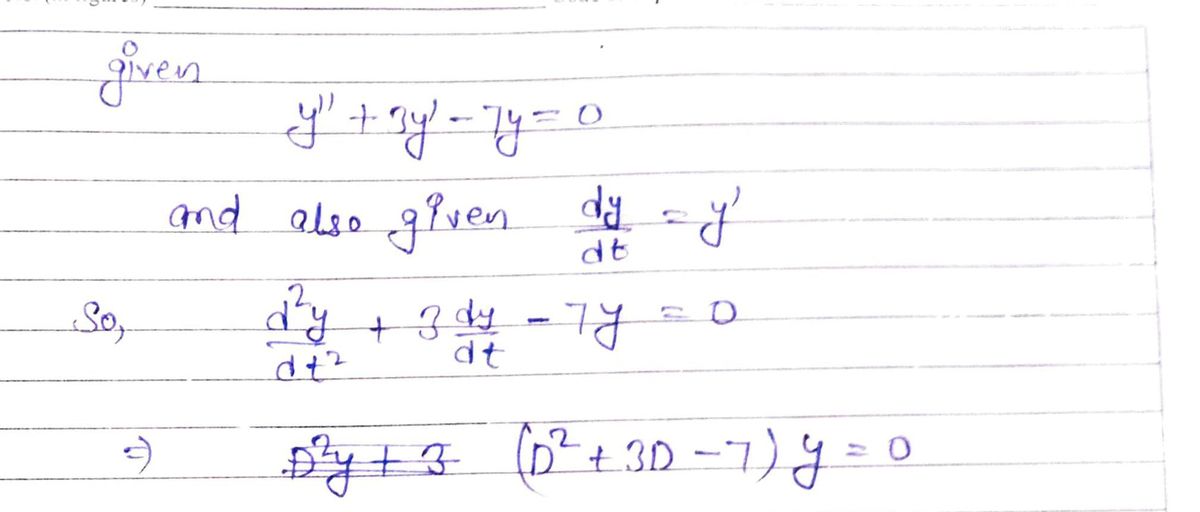 given
y'' + 3y' - 7y = 0
and also given dy/dt = y'
So, d²y/dt² + 3 dy/dt - 7y = 0
⇒ D²y + 3 (D² + 3D - 7) y = 0